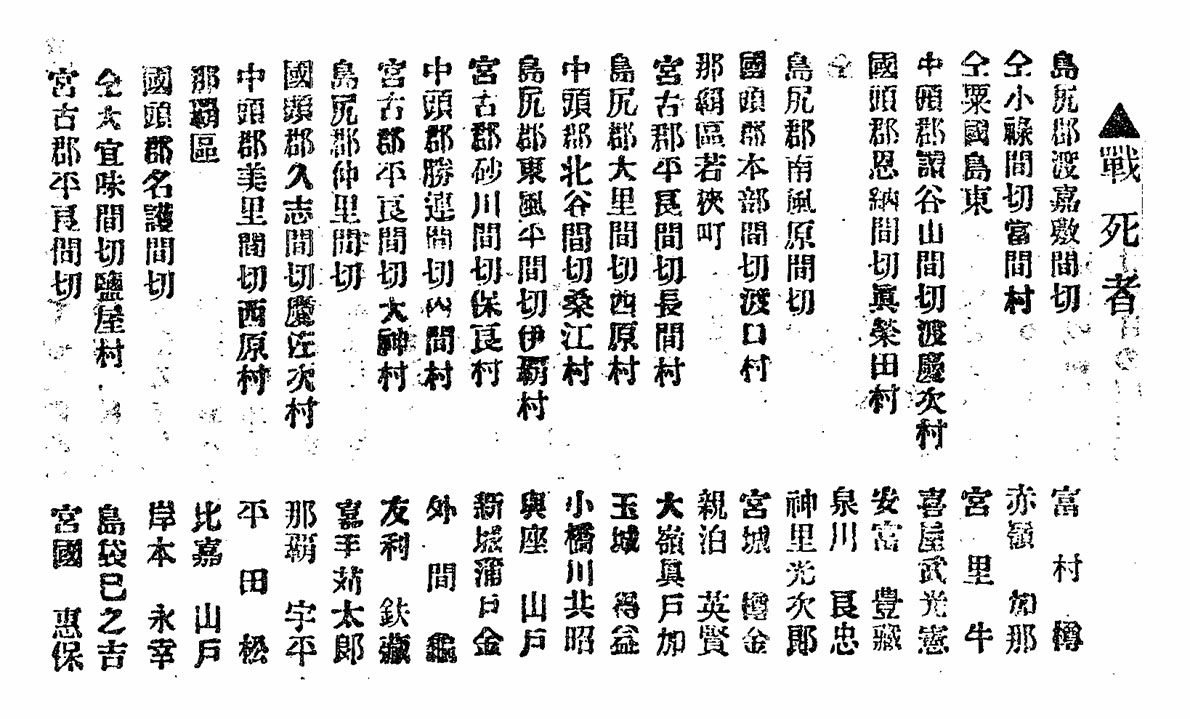 ▲戰死者
島尻郡渡嘉敷間切 富村樽
仝小祿間切當間村 赤嶺加那
仝粟國島東 宮里牛
中頭郡讀谷山間切渡慶次村 喜屋武光憲
國頭郡恩納間切眞榮田村 安富豊藏
仝 泉川良忠
島尻郡南風原間切 神里光次郎
國頭郡本部間切渡口村 宮城樽金
那覇區若狹町 親泊英賢
宮古郡平良間切長間村 大嶺眞戸加
島尻郡大里間切西原村 玉城得益
中頭郡北谷間切桑江村 小橋川共昭
島尻郡東風平間切伊覇村 與座山戸
宮古郡砂川間切保良村 新城蒲戸金
中頭郡勝連間切内間村 外間龜
宮古郡平良間切大神村 友利鉄藏
島尻郡仲里間切 嘉手苅太郎
國頭郡久志間切慶佐次村 那覇宇平
中頭郡美里間切西原村 平田松
那覇區 比嘉山戸
國頭郡名護間切 岸本永幸
仝大宜味間切鹽屋村 島袋巳之吉
宮古郡平良間切 宮國惠保